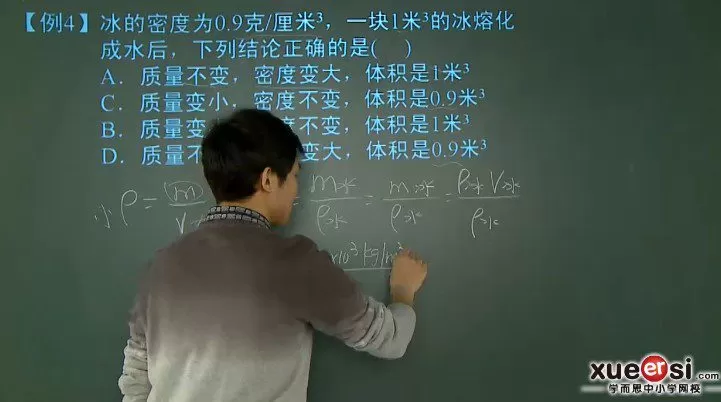 【例4】冰的密度为0.9克/厘米³，一块1米³的冰熔化
成水后，下列结论正确的是(　)
A．质量不变，密度变大，体积是1米³
C．质量变小，密度不变，体积是0.9米³
B．质量变 度不变，体积是1米³
D．质量不 变大，体积是0.9米³
ρ = m/V = m水/ρ水 = m冰/ρ水 = ρ冰V冰/ρ水
×10³kg/m³
xueersi.com
学而思中小学网校